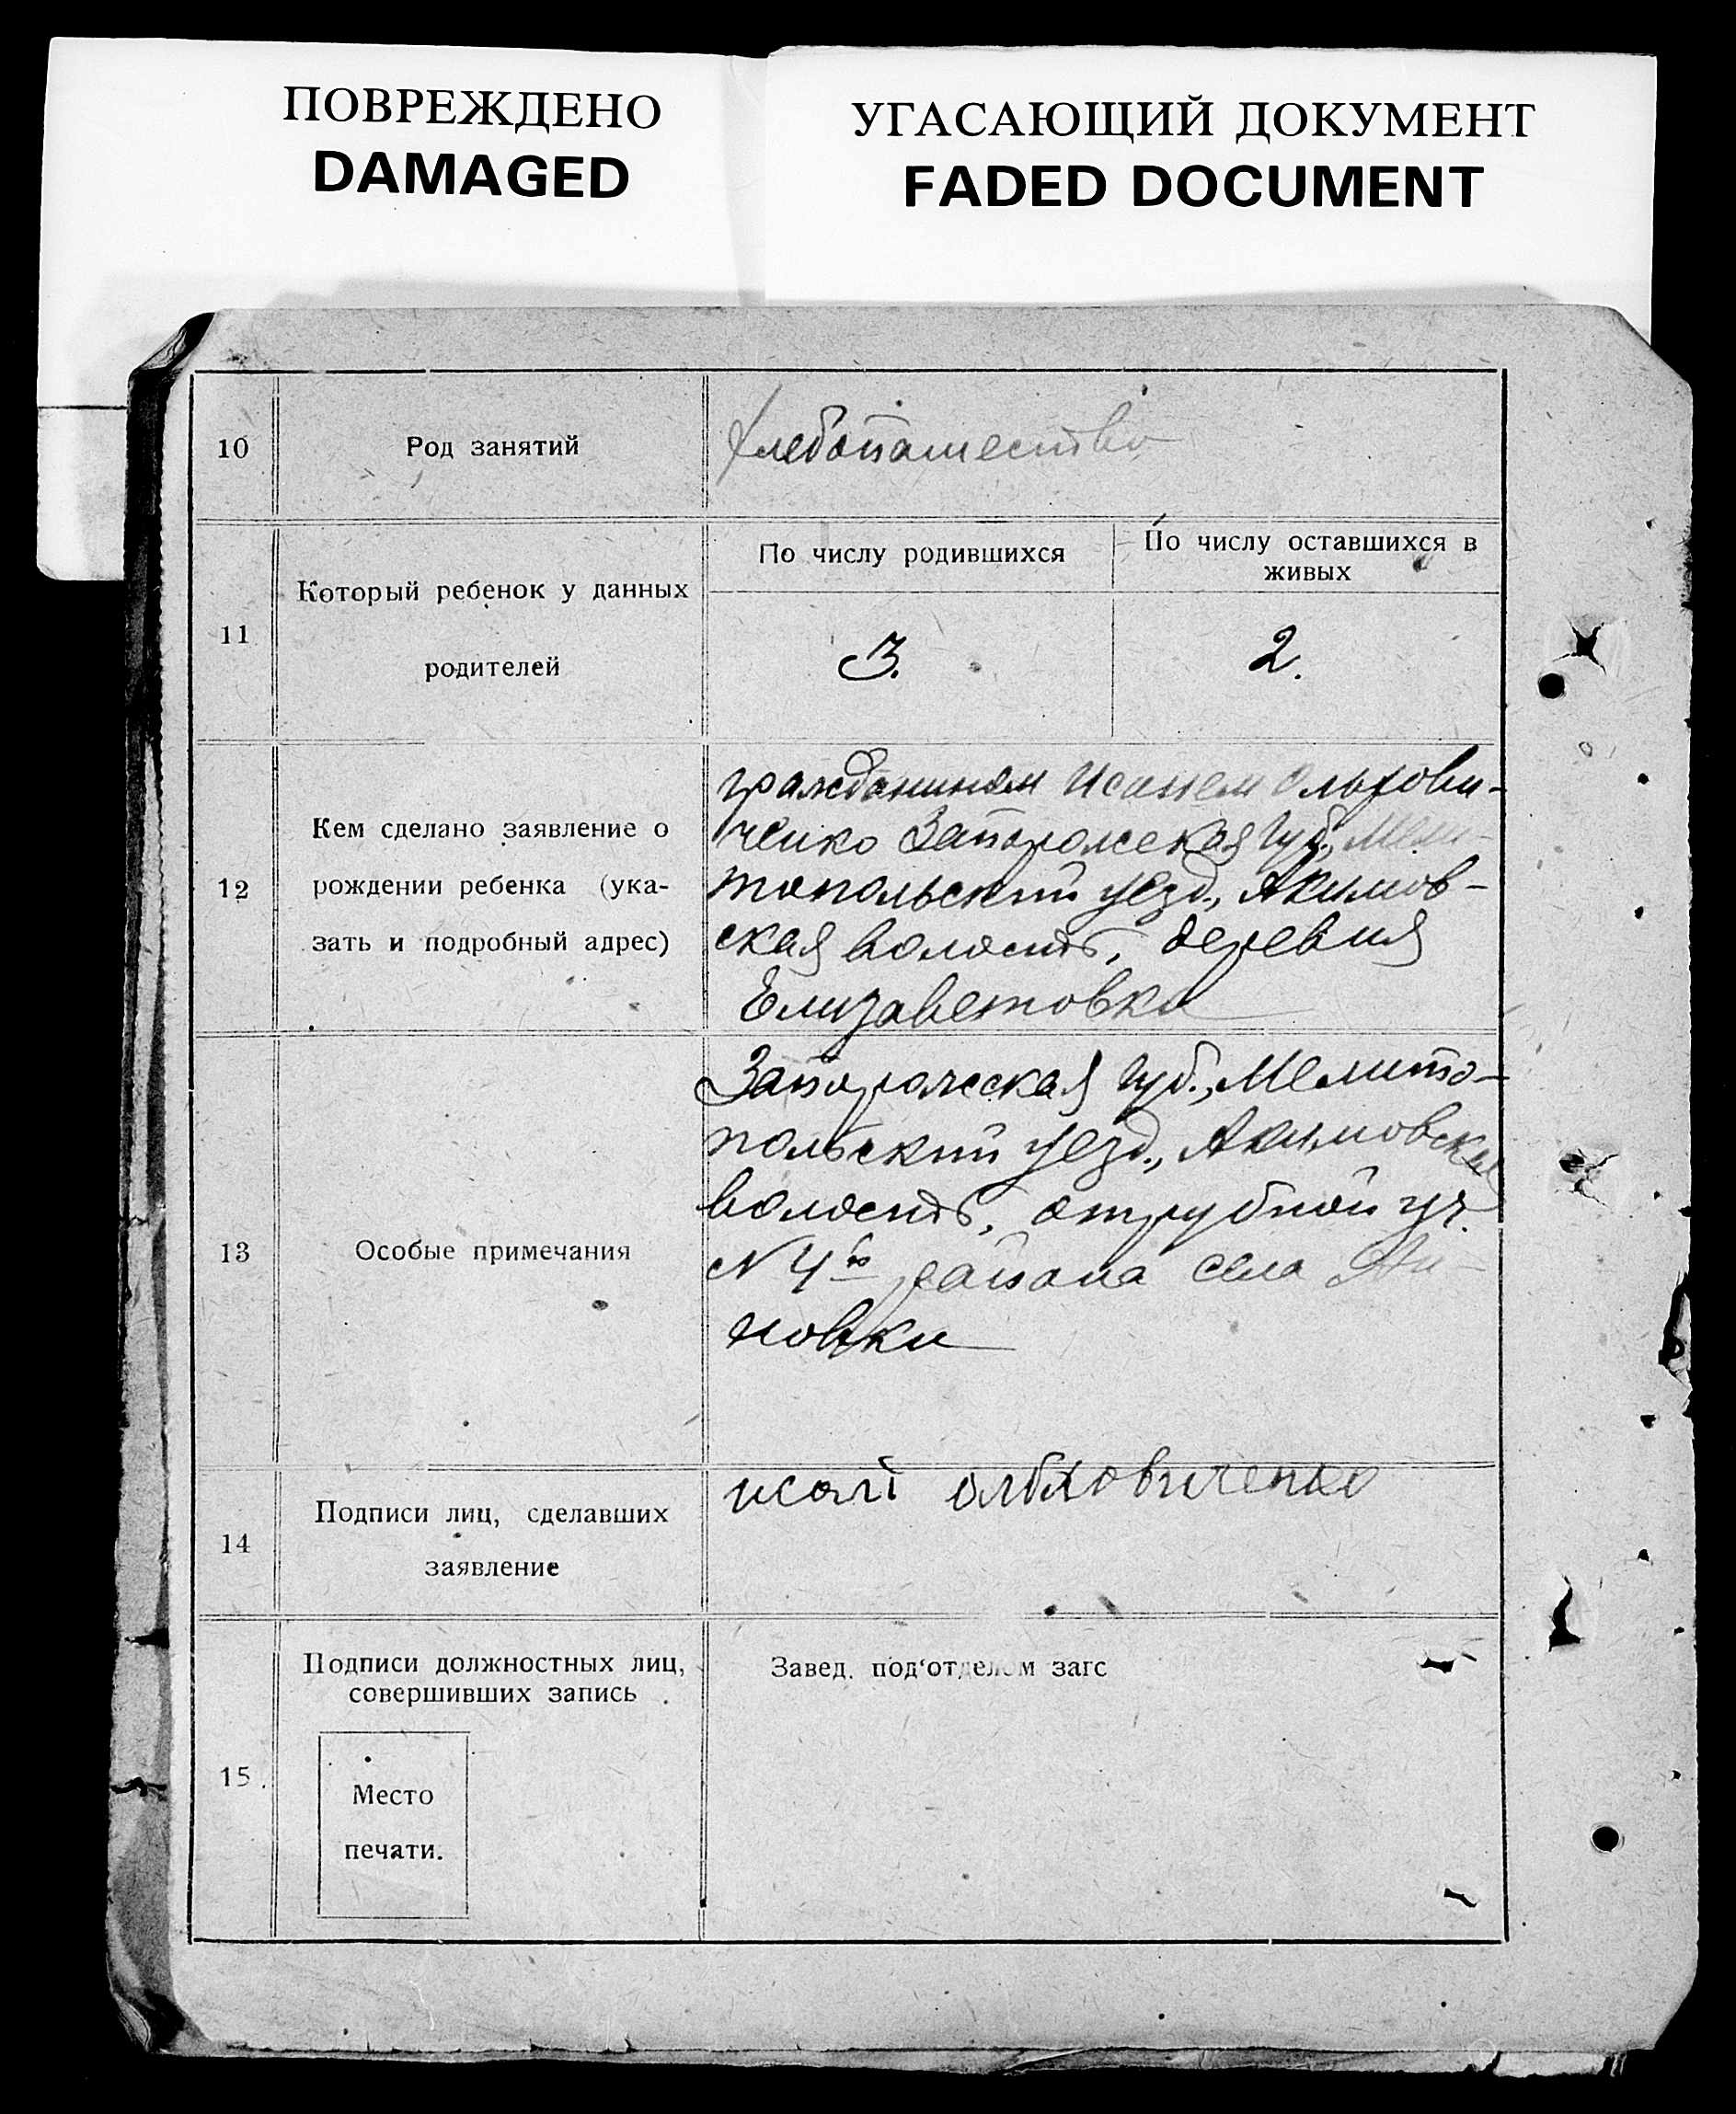 ПОВРЕЖДЕНО
DAMAGED
УГАСАЮЩИЙ ДОКУМЕНТ
FADED DOCUMENT
10
Род занятий
Хлебопашество
11
Который ребенок у данных
родителей
По числу родившихся
По числу оставшихся в
живых
3.
2.
12
Кем сделано заявление о
рождении ребенка (ука-
зать и подробный адрес)
гражданином Исаием Ольхови-
ченко Запорожская губ., Мели-
топольский уезд., Акимов-
ская волость, деревня
Елизаветовка
13
Особые примечания
Запорожская губ., Мелито-
польский уезд., Акимовская
волость, отрубной уч.
N 4 района села
новки
14
Подписи лиц, сделавших
заявление
Ольховиченко
15.
Подписи должностных лиц,
совершивших запись
Место
печати.
Завед. под‘отделом загс